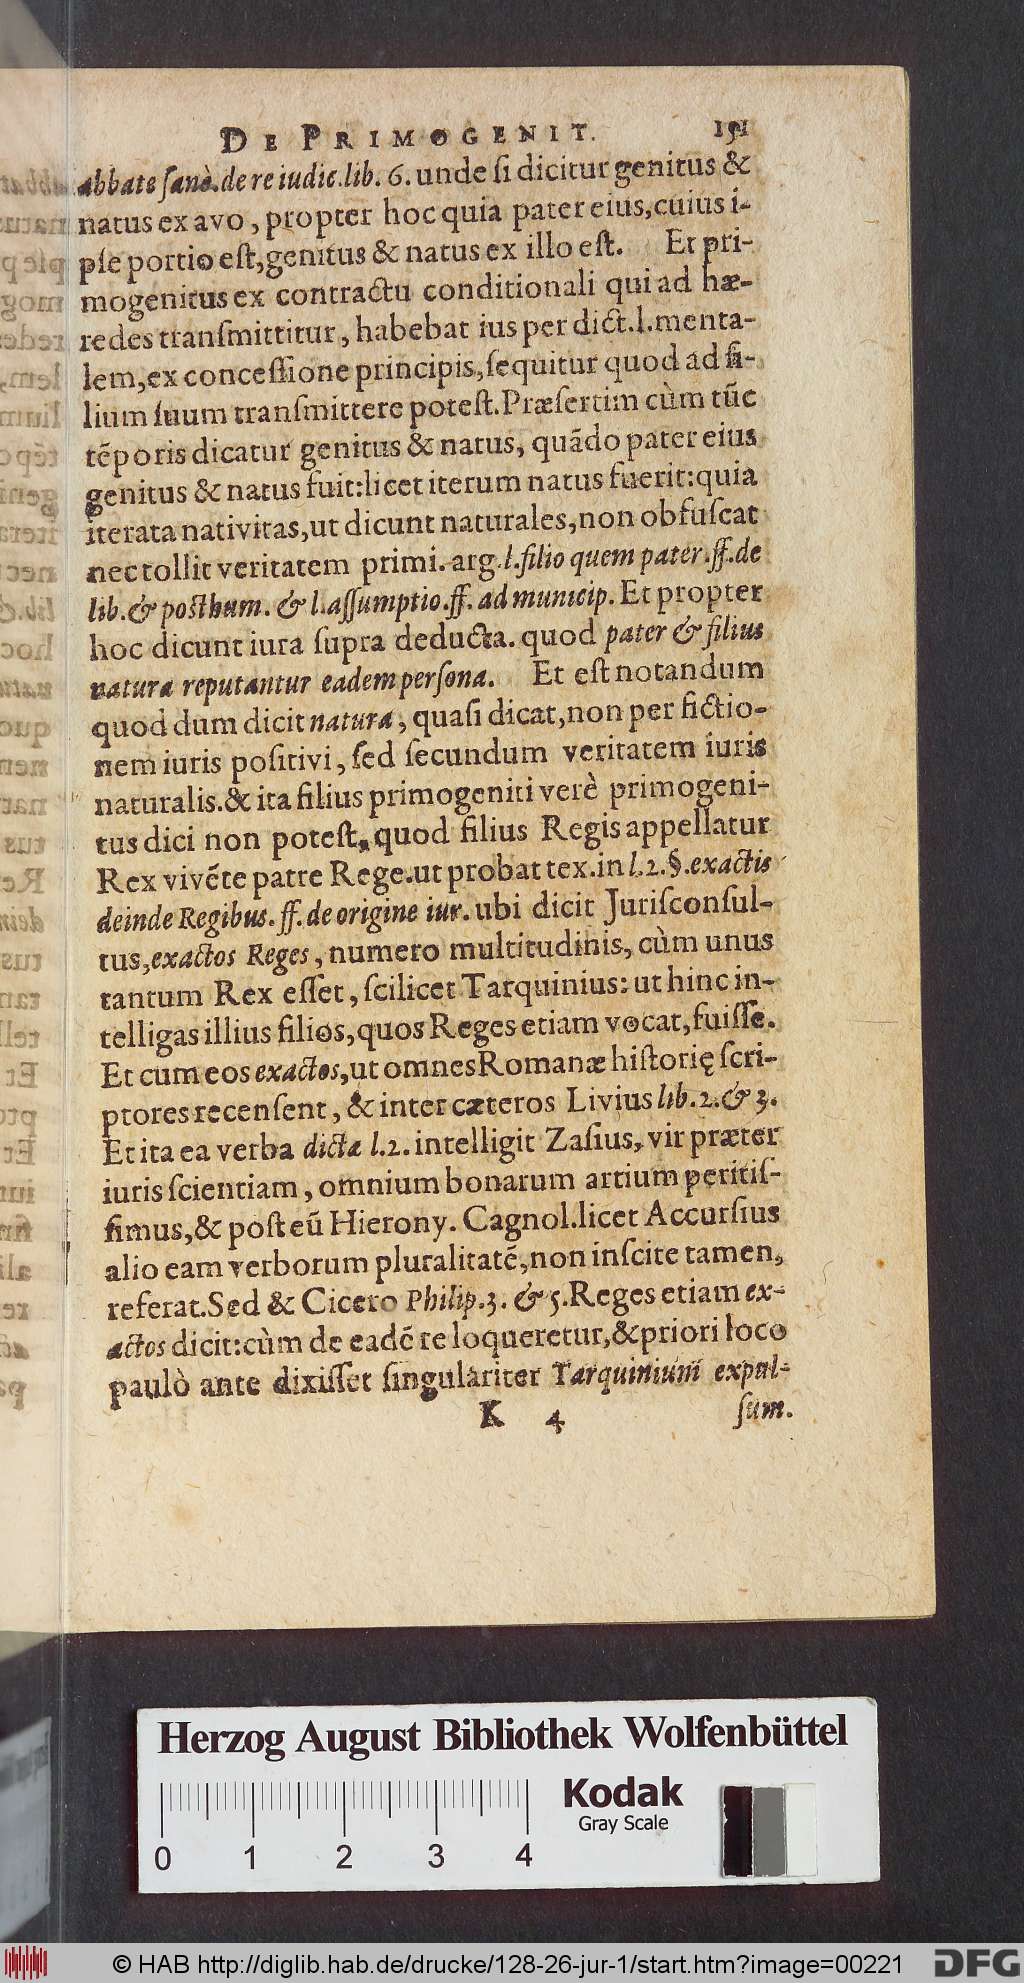 DE PRIMOGENIT. 151
abbate sanè.de re iudic.lib. 6. unde si dicitur genitus &
natus ex avo, propter hoc quia pater eius,cuius i-
pse portio est,genitus & natus ex illo est. Et pri-
mogenitus ex contractu conditionali qui ad hæ-
redes transmittitur, habebat ius per dict.l.menta-
lem,ex concessione principis,sequitur quod ad fi-
lium suum transmittere potest.Præsertim cùm tũc
tẽporis dicatur genitus & natus, quãdo pater eius
genitus & natus fuit:licet iterum natus fuerit:quia
iterata nativitas,ut dicunt naturales,non obfuscat
nec tollit veritatem primi. arg.l.filio quem pater.ff.de
lib.& posthum. & l.assumptio.ff. ad municip. Et propter
hoc dicunt iura supra deducta. quod pater & filius
natura reputantur eadem persona. Et est notandum
quod dum dicit natura, quasi dicat,non per fictio-
nem iuris positivi, sed secundum veritatem iuris
naturalis.& ita filius primogeniti verè primogeni-
tus dici non potest, quod filius Regis appellatur
Rex vivẽte patre Rege.ut probat tex.in l.2.§.exactis
deinde Regibus.ff.de origine iur. ubi dicit Jurisconsul-
tus,exactos Reges, numero multitudinis, cùm unus
tantum Rex esset, scilicet Tarquinius: ut hinc in-
telligas illius filios,quos Reges etiam vocat,fuisse.
Et cum eos exactos,ut omnes Romanæ historię scri-
ptores recensent, & inter cæteros Livius lib.2.& 3.
Et ita ea verba dicta l.2. intelligit Zasius, vir præter
iuris scientiam, omnium bonarum artium peritis-
simus,& post eũ Hierony. Cagnol.licet Accursius
alio eam verborum pluralitatẽ,non inscite tamen,
referat.Sed & Cicero Philip.3. & 5.Reges etiam ex-
actos dicit:cùm de eadẽ re loqueretur,& priori loco
paulò ante dixisset singulariter Tarquinium expul-
K 4 sum.
Herzog August Bibliothek Wolfenbüttel
Kodak
Gray Scale
0 1 2 3 4
© HAB http://diglib.hab.de/drucke/128-26-jur-1/start.htm?image=00221
DFG